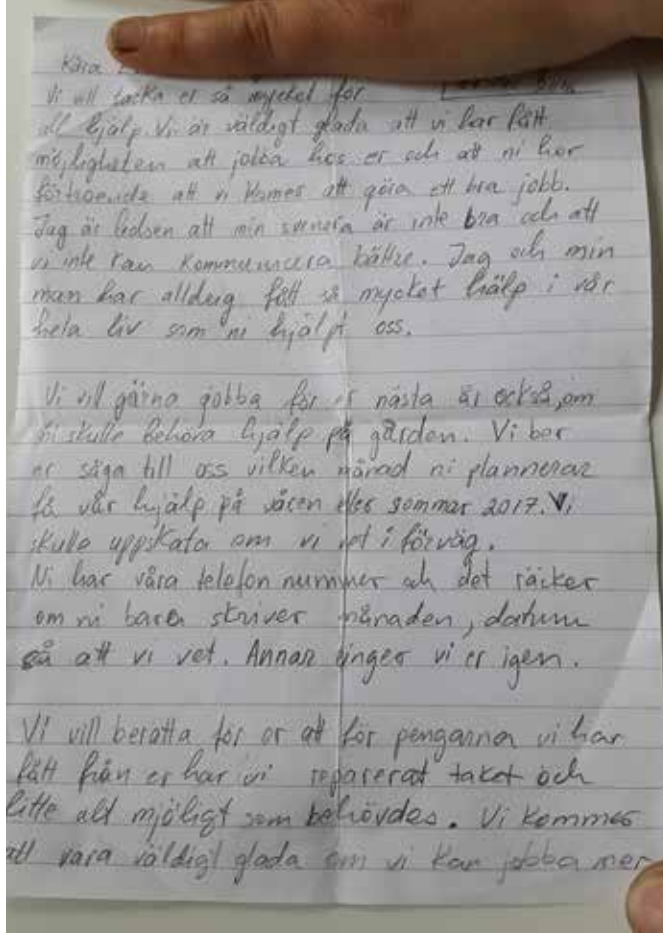 Kära
Vi vill tacka er så mycket för
all hjälp. Vi är väldigt glada att vi har fått
möjligheten att jobba hos er och att ni har
förtroende att vi komer att göra ett bra jobb.
Jag är ledsen att min svenska är inte bra och att
vi inte kan kommunicera bättre. Jag och min
man har alldrig fått så mycket hjälp i vår
hela liv som ni hjälpt oss.
Vi vill gärna jobba för er nästa år också, om
ni skulle behöva hjälp på gården. Vi ber
er säga till oss vilken månad ni plannerar
få vår hjälp på våren eller sommar 2017. Vi
skulle uppskata om vi vet i förväg.
Ni har våra telefon nummer och det räcker
om ni bara skriver månaden, datum
så att vi vet. Annar ringer vi er igen.
Vi vill beratta för er att för pengarna vi har
fått från er har vi reparerat taket och
litte allt mjöligt som behövdes. Vi kommer
att vara väldigt glada om vi kan jobba mer